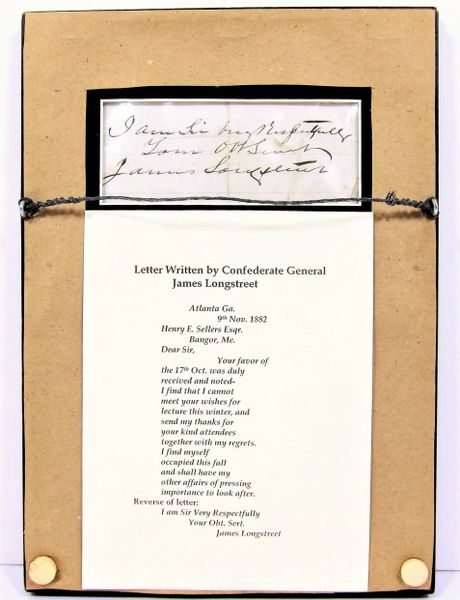 I am Sir very Respectfully
Your Obt Servt
James Longstreet
Letter Written by Confederate General
James Longstreet
Atlanta Ga.
9th Nov. 1882
Henry E. Sellers Esqr.
Bangor, Me.
Dear Sir,
Your favor of
the 17th Oct. was duly
received and noted-
I find that I cannot
meet your wishes for
lecture this winter, and
send my thanks for
your kind attendees
together with my regrets.
I find myself
occupied this fall
and shall have my
other affairs of pressing
importance to look after.
Reverse of letter:
I am Sir Very Respectfully
Your Obt. Sert.
James Longstreet